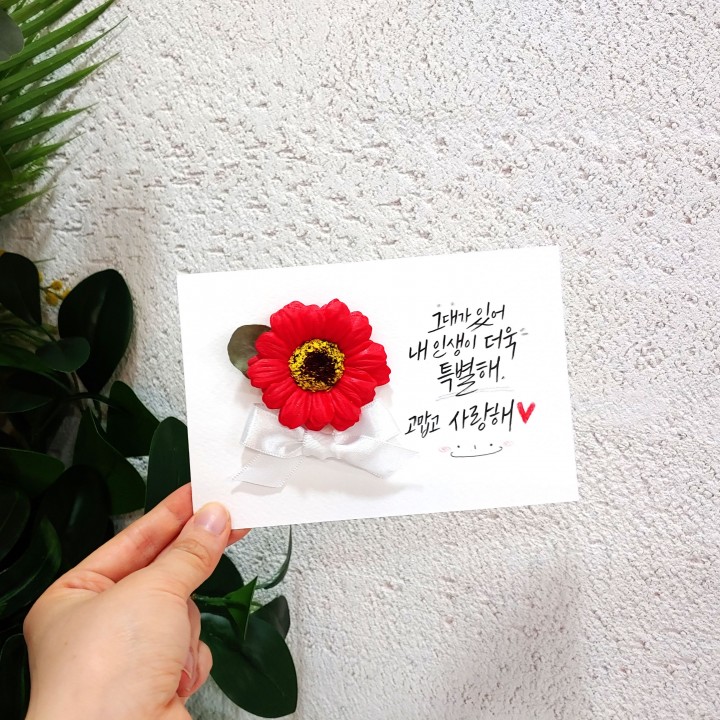 그대가 있어
내 인생이 더욱
특별해.
고맙고 사랑해